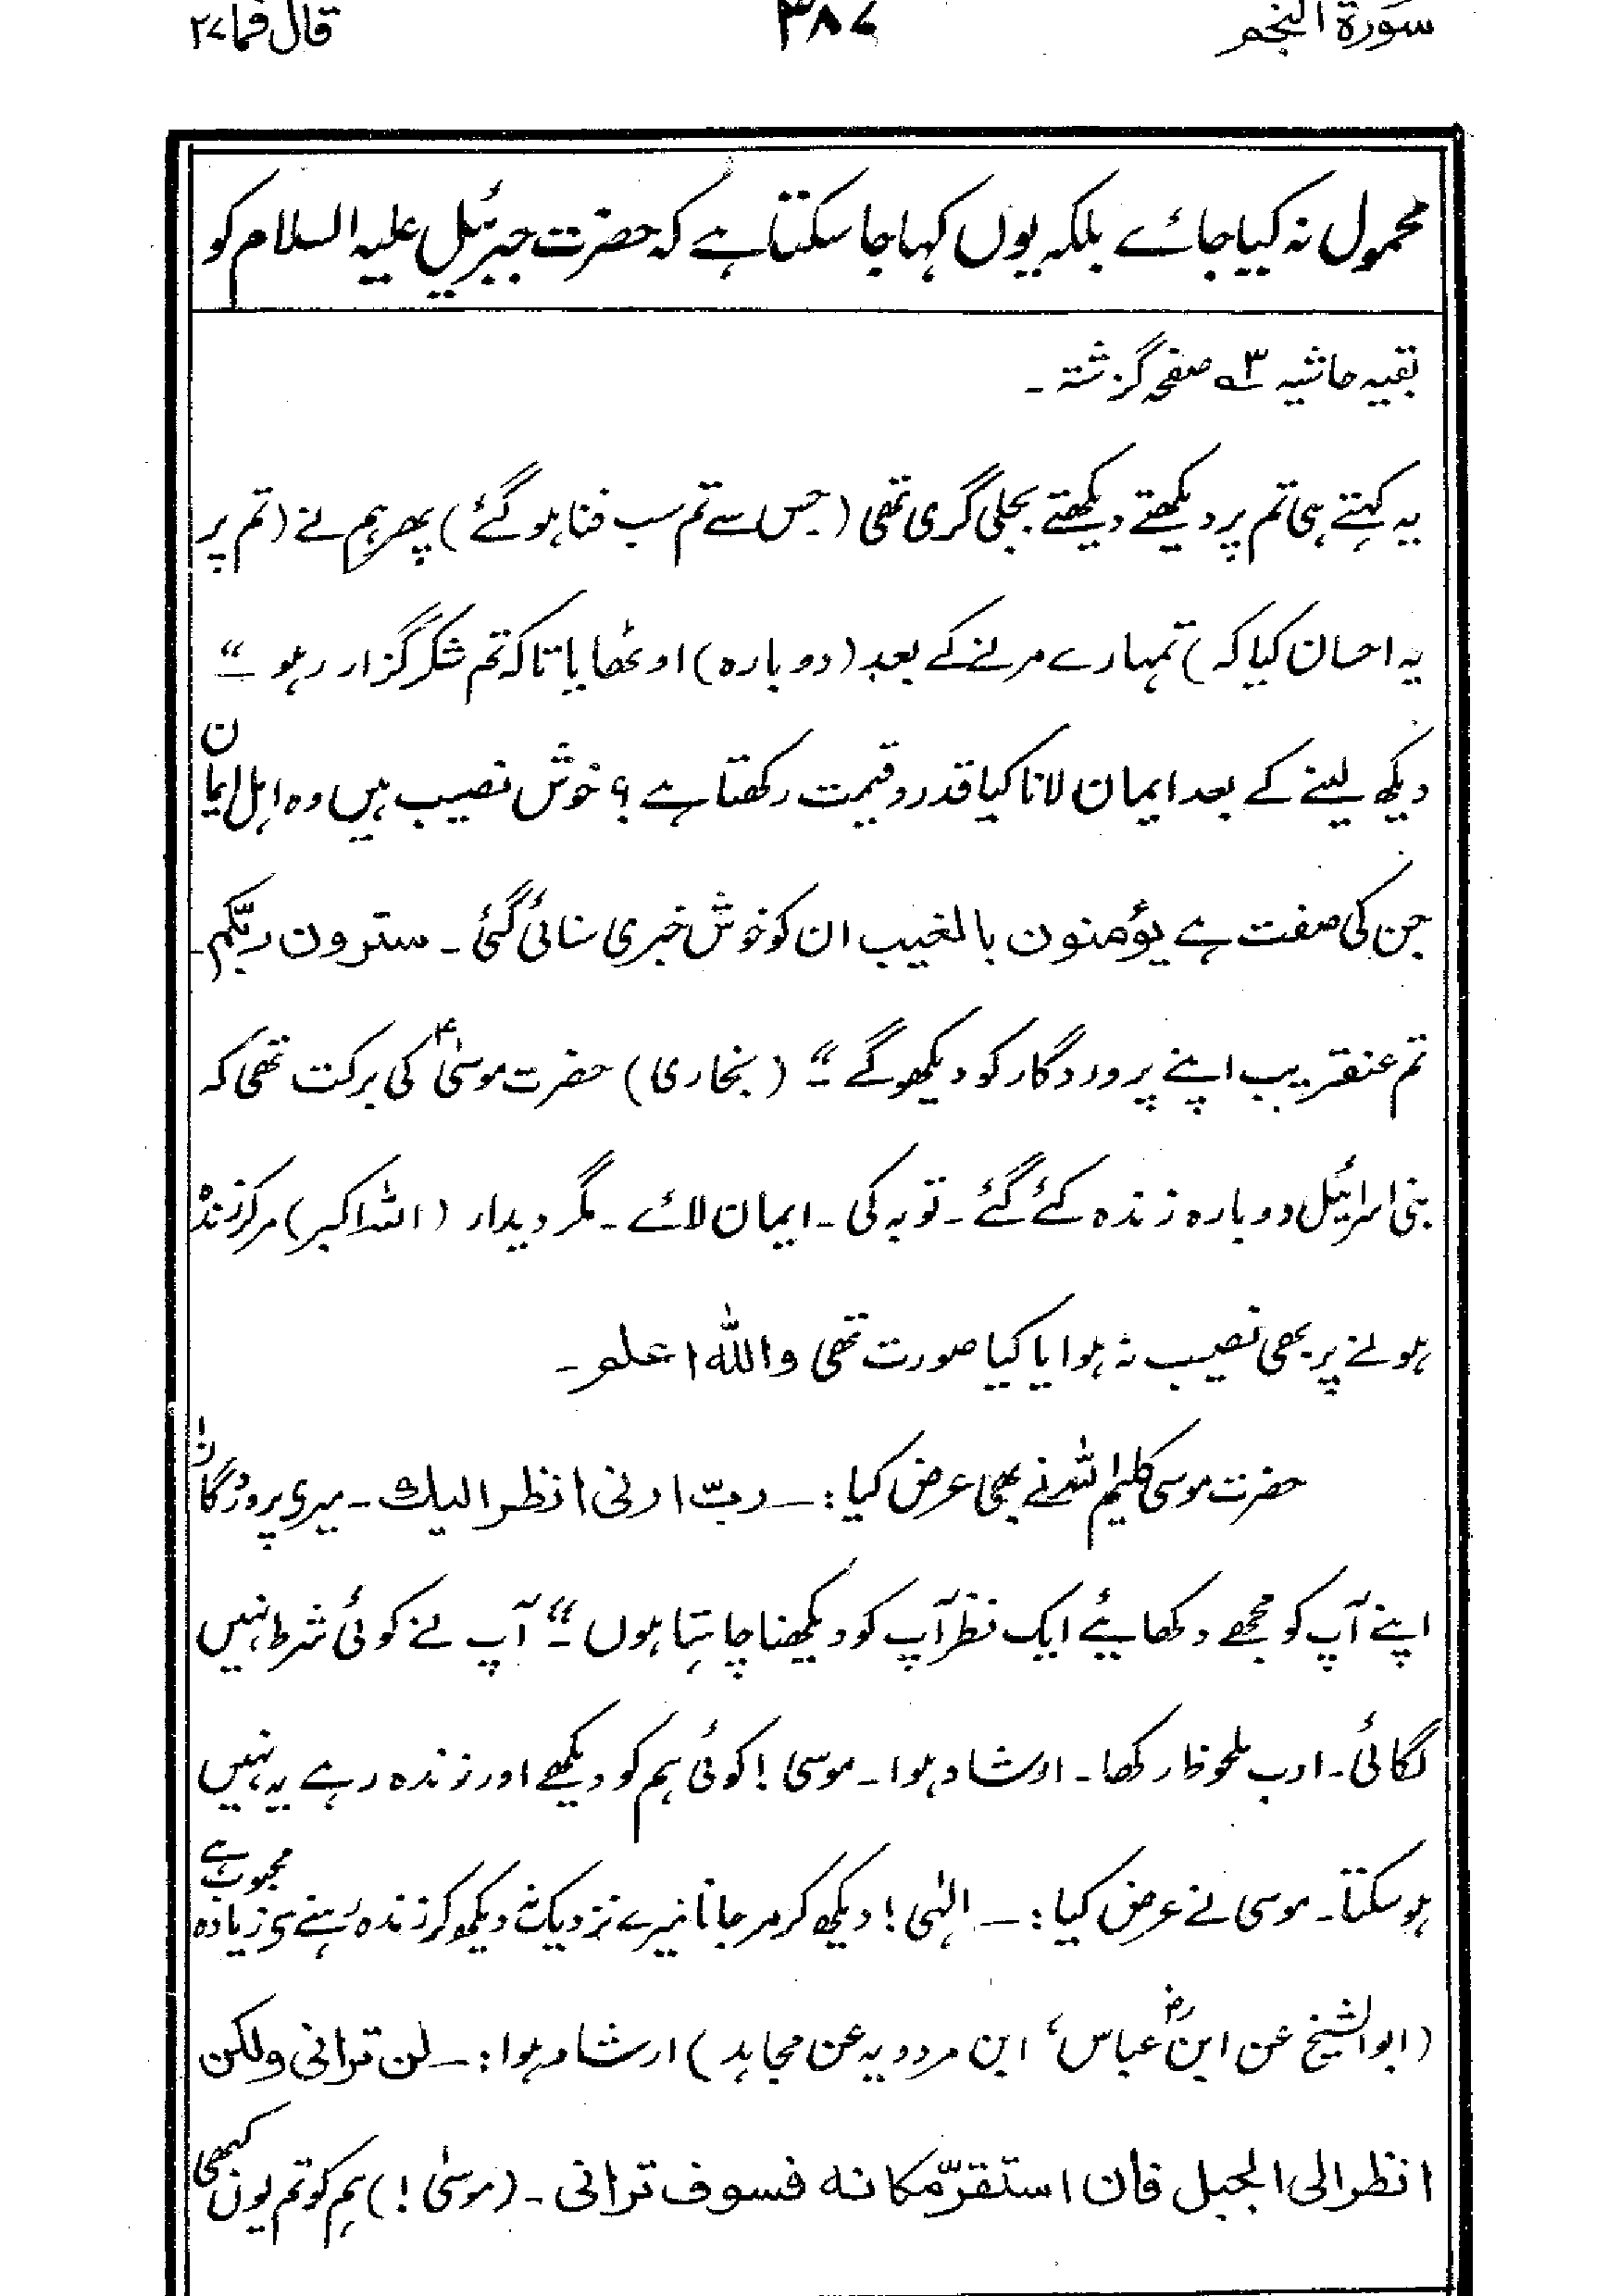 سورۃ النجم ۳۸۷ قال فما ۲۷
محمول نہ کیا جائے بلکہ یوں کہا جا سکتا ہے کہ حضرت جبرئیل علیہ السلام کو
بقیہ حاشیہ ۳؎ صفحہ گزشتہ ۔
یہ کہتے ہی تم پر دیکھتے دیکھتے بجلی گری تھی (جس سے تم سب فنا ہو گئے) پھر ہم نے (تم پر
یہ احسان کیا کہ) تمہارے مرنے کے بعد (دوبارہ) اوٹھایا تاکہ تم شکر گزار رہو ۔“
دیکھ لینے کے بعد ایمان لانا کیا قدر و قیمت رکھتا ہے ؟ خوش نصیب ہیں وہ اہل ایمان
جن کی صفت ہے یؤمنون بالغیب ان کو خوش خبری سنائی گئی ۔ سترون ربّکم ۔
تم عنقریب اپنے پروردگار کو دیکھو گے ۔“ (بخاری) حضرت موسیٰؑ کی برکت تھی کہ
بنی اسرائیل دوبارہ زندہ کئے گئے ۔ توبہ کی ۔ ایمان لائے ۔ مگر دیدار (اللہ اکبر) مرکر زندہ
ہونے پر بھی نصیب نہ ہوا یا کیا صورت تھی واللہ اعلم ۔
حضرت موسی کلیم اللہ نے بھی عرض کیا :۔ ربّ ارنی انظر الیک ۔ میری پروردگار!
اپنے آپ کو مجھے دکھائیے ایک نظر آپ کو دیکھنا چاہتا ہوں ۔“ آپ نے کوئی شرط نہیں
لگائی ۔ ادب ملحوظ رکھا ۔ ارشاد ہوا ۔ موسی ! کوئی ہم کو دیکھے اور زندہ رہے یہ نہیں
ہو سکتا ۔ موسی نے عرض کیا :۔ الہٰی ! دیکھ کر مر جانا میرے نزدیک نہ دیکھ کر زندہ رہنے سے زیادہ محبوب ہے
(ابو الشیخ عن ابن عباسؓ، ابن مردویہ عن مجاہد) ارشاد ہوا :۔ لن ترانی ولکن
انظر الی الجبل فان استقرّ مکانہ فسوف ترانی ۔ (موسیٰ !) ہم کو تم یوں کبھی